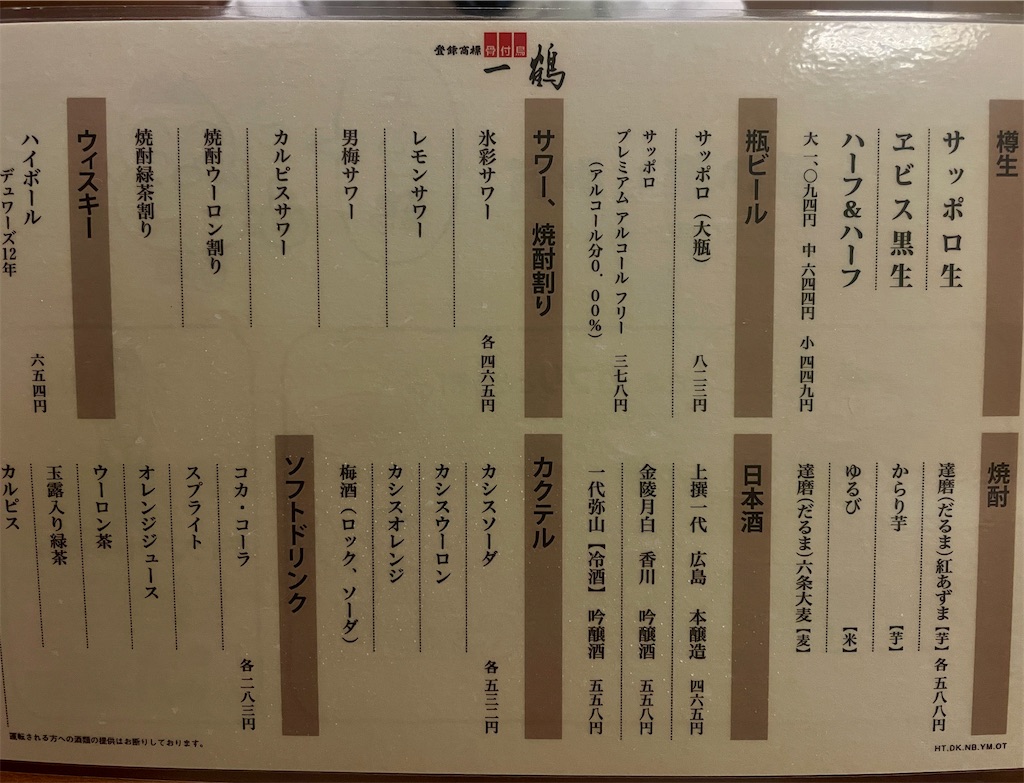 登録商標 骨付鳥
一鶴
樽生
サッポロ生
ヱビス黒生
ハーフ&ハーフ
大 一、〇九四円 中 六四四円 小 四四九円
瓶ビール
サッポロ（大瓶） 八二三円
サッポロ
プレミアム アルコール フリー
（アルコール分0．00%） 三七八円
サワー、焼酎割り
氷彩サワー 各 四六五円
レモンサワー
男梅サワー
カルピスサワー
焼酎ウーロン割り
焼酎緑茶割り
ウィスキー
ハイボール
デュワーズ12年 六五四円
焼酎
達磨（だるま）紅あずま【芋】 各 五八八円
からり芋 【芋】
ゆるび 【米】
達磨（だるま）六条大麦【麦】
日本酒
上撰一代 広島 本醸造 四六五円
金陵月白 香川 吟醸酒 五五八円
一代弥山【冷酒】 吟醸酒 五五八円
カクテル
カシスソーダ 各 五三二円
カシスウーロン
カシスオレンジ
梅酒（ロック、ソーダ）
ソフトドリンク
コカ・コーラ 各 二八三円
スプライト
オレンジジュース
ウーロン茶
玉露入り緑茶
カルピス
運転される方への酒類の提供はお断りしております。
HT.DK.NB.YM.OT